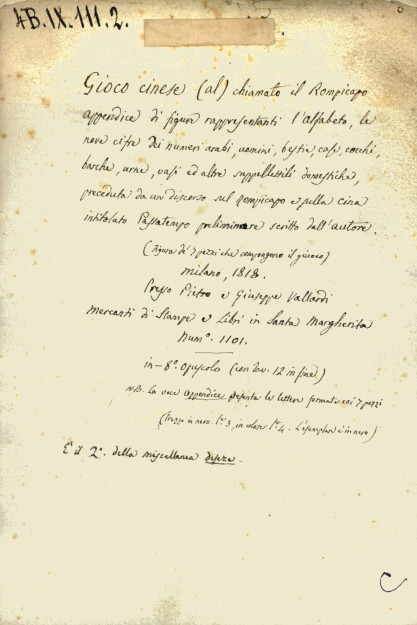 4B.IX.III.2.
Gioco cinese (al) chiamato il Rompicapo
appendice di figure rappresentanti l'alfabeto, le
nove cifre dei numeri arabi, uomini, bestie, case, cocchi,
barche, urne, vasi ed altre suppellettili domestiche,
preceduta da un discorso sul Rompicapo e sulla Cina
intitolato Passatempo preliminare scritto dall'autore.
(Figura de' 7 pezzi che compongono il giuoco)
Milano, 1818.
Presso Pietro e Giuseppe Vallardi
Mercanti di Stampe e Libri in Santa Margherita
Num°. 1101.
in-8° opuscolo (con tav. 12 in fine.)
N.B. la voce appendice presenta le lettere formate coi 7 pezzi
(Prezzo in nero L.3, in colore L.4. L'esemplare è in nero)
E' il 2°. della miscellanea
C